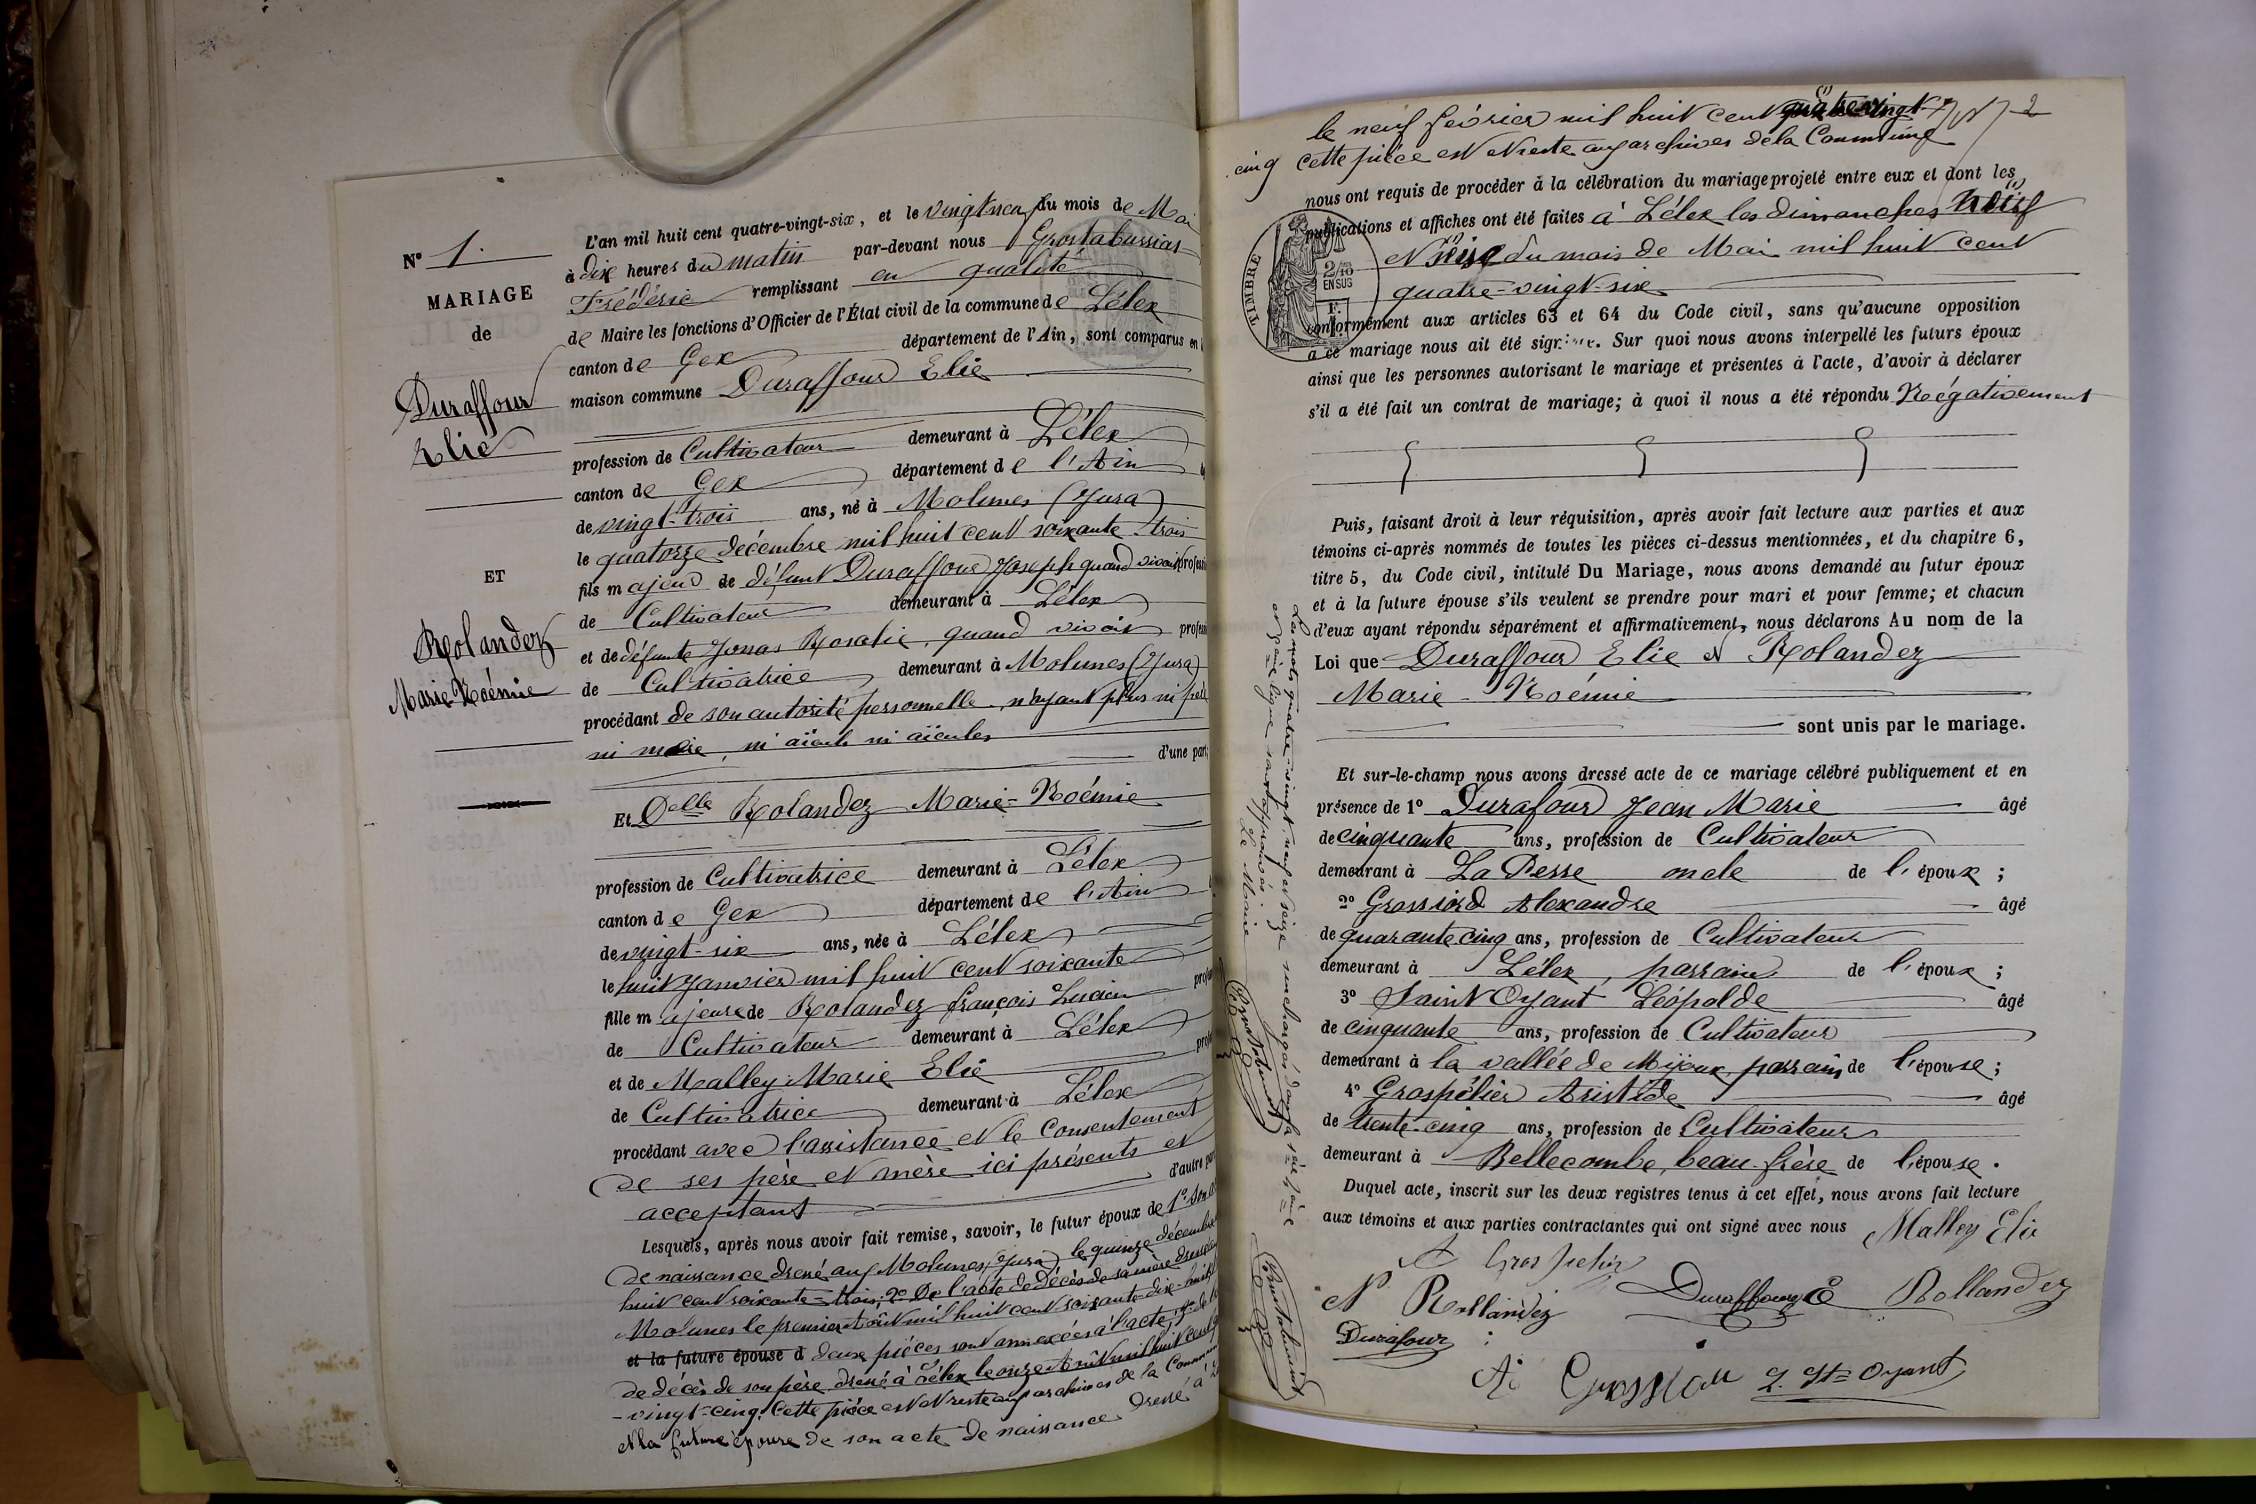 N° 1.
MARIAGE
de
Duraffour
Elie
ET
Rolandez
Marie Noémie
L'an mil huit cent quatre-vingt-six, et le vingt neuf du mois de Mai
à dix heures du matin par-devant nous Grostabussiat
Frédéric remplissant en qualité
de Maire les fonctions d'Officier de l'État civil de la commune de Lélex
canton de Gex département de l'Ain, sont comparus en
maison commune Duraffour Elie
profession de Cultivateur demeurant à Lélex
canton de Gex département de l'Ain
de vingt-trois ans, né à Molunes (Jura)
le quatorze décembre mil huit cent soixante-trois
fils majeur de défunt Duraffour Joseph quand vivait
de Cultivateur demeurant à Lélex
et de défunte Jonas Rosalie, quand vivait
de Cultivatrice demeurant à Molunes (Jura)
procédant de son autorité personnelle, n'ayant plus ni père
ni mère, ni aïeuls ni aïeules
d'une part;
Et Delle Rolandez Marie-Noémie
profession de Cultivatrice demeurant à Lélex
canton de Gex département de l'Ain
de vingt-six ans, née à Lélex
le huit Janvier mil huit cent soixante
fille majeure de Rolandez françois Lucien
de Cultivateur demeurant à Lélex
et de Malley Marie Elie
de Cultivatrice demeurant à Lélex
procédant avec l'assistance et le Consentement
de ses père et mère ici présents et
acceptant d'autre part
Lesquels, après nous avoir fait remise, savoir, le futur époux de 1° Son
de naissance dressé aux Molunes (Jura) le quinze décembre
huit cent soixante-trois; 2° De l'acte de décès de sa mère dressé
Molunes le premier Août mil huit cent soixante dix-huit
et la future épouse d deux pièces sont annexées à l'acte; de
de décès de son père dressé à Lélex le onze Août mil huit cent
-vingt-cinq. Cette pièce est et reste aux archives de la Commune
et la future épouse de son acte de naissance dressé à
le neuf février mil huit cent quatre vingt 2
cinq cette pièce est et reste aux archives de la Commune
nous ont requis de procéder à la célébration du mariage projeté entre eux et dont les
publications et affiches ont été faites à Lélex les dimanches neuf
et seize du mois de Mai mil huit cent
quatre-vingt-six
TIMBRE
2/10
EN SUS
conformément aux articles 63 et 64 du Code civil, sans qu'aucune opposition
à ce mariage nous ait été signifiée. Sur quoi nous avons interpellé les futurs époux
ainsi que les personnes autorisant le mariage et présentes à l'acte, d'avoir à déclarer
s'il a été fait un contrat de mariage; à quoi il nous a été répondu Négativement
Puis, faisant droit à leur réquisition, après avoir fait lecture aux parties et aux
témoins ci-après nommés de toutes les pièces ci-dessus mentionnées, et du chapitre 6,
titre 5, du Code civil, intitulé Du Mariage, nous avons demandé au futur époux
et à la future épouse s'ils veulent se prendre pour mari et pour femme; et chacun
d'eux ayant répondu séparément et affirmativement, nous déclarons Au nom de la
Loi que Duraffour Elie et Rolandez
Marie-Noémie
sont unis par le mariage.
Et sur-le-champ nous avons dressé acte de ce mariage célébré publiquement et en
présence de 1° Durafour Jean Marie âgé
de cinquante ans, profession de Cultivateur
demeurant à La Pesse oncle de l'époux;
2° Grossiord Alexandre âgé
de quarante cinq ans, profession de Cultivateur
demeurant à Lélex, parrain de l'époux;
3° Saint Oyant Léopolde âgé
de cinquante ans, profession de Cultivateur
demeurant à la vallée de Mijoux, parrain de l'épouse;
4° Grospélier Aristide âgé
de trente-cinq ans, profession de Cultivateur
demeurant à Bellecombe, beau-frère de l'épouse.
Duquel acte, inscrit sur les deux registres tenus à cet effet, nous avons fait lecture
aux témoins et aux parties contractantes qui ont signé avec nous Malley Elie
A Grospelier
N Rollandez Duraffourg E Rollandez
Durafour
A Grossiord L St Oyant
Les mots quatre-vingt, neuf et seize surchargés dans la
ligne sont approuvés.
Le Maire